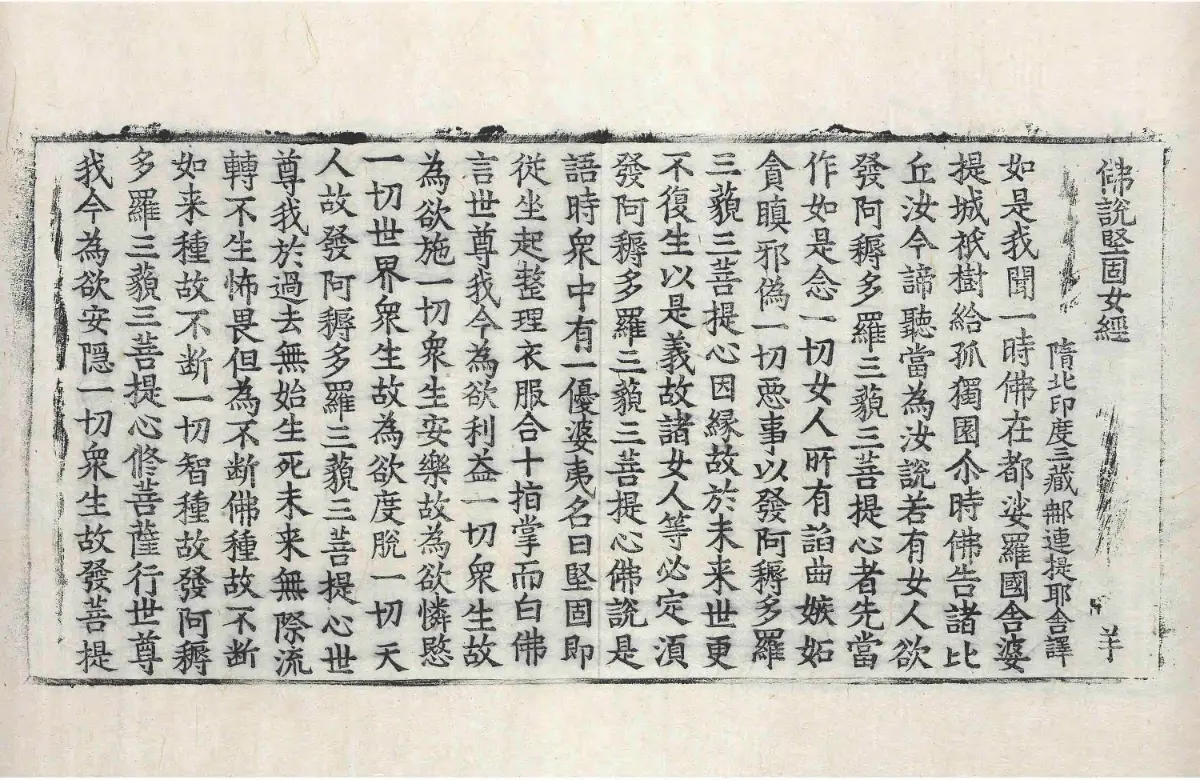 佛說堅固女經 羊
隋北印度三藏郍連提耶舍譯
如是我聞一時佛在都娑羅國舍婆
提城祇樹給孤獨園尒時佛告諸比
丘汝今諦聽當為汝說若有女人欲
發阿耨多羅三藐三菩提心者先當
作如是念一切女人所有諂曲嫉妬
貪瞋邪偽一切惡事以發阿耨多羅
三藐三菩提心因縁故於未来世更
不復生以是義故諸女人等必定湏
發阿耨多羅三藐三菩提心佛說是
語時衆中有一優婆夷名曰堅固即
從坐起整理衣服合十指掌而白佛
言世尊我今為欲利益一切衆生故
為欲施一切衆生安樂故為欲憐愍
一切世界衆生故為欲度脫一切天
人故發阿耨多羅三藐三菩提心世
尊我於過去無始生死未来無際流
轉不生怖畏但為不断佛種故不断
如来種故不断一切智種故發阿耨
多羅三藐三菩提心修菩薩行世尊
我今為欲安隱一切衆生故發菩提